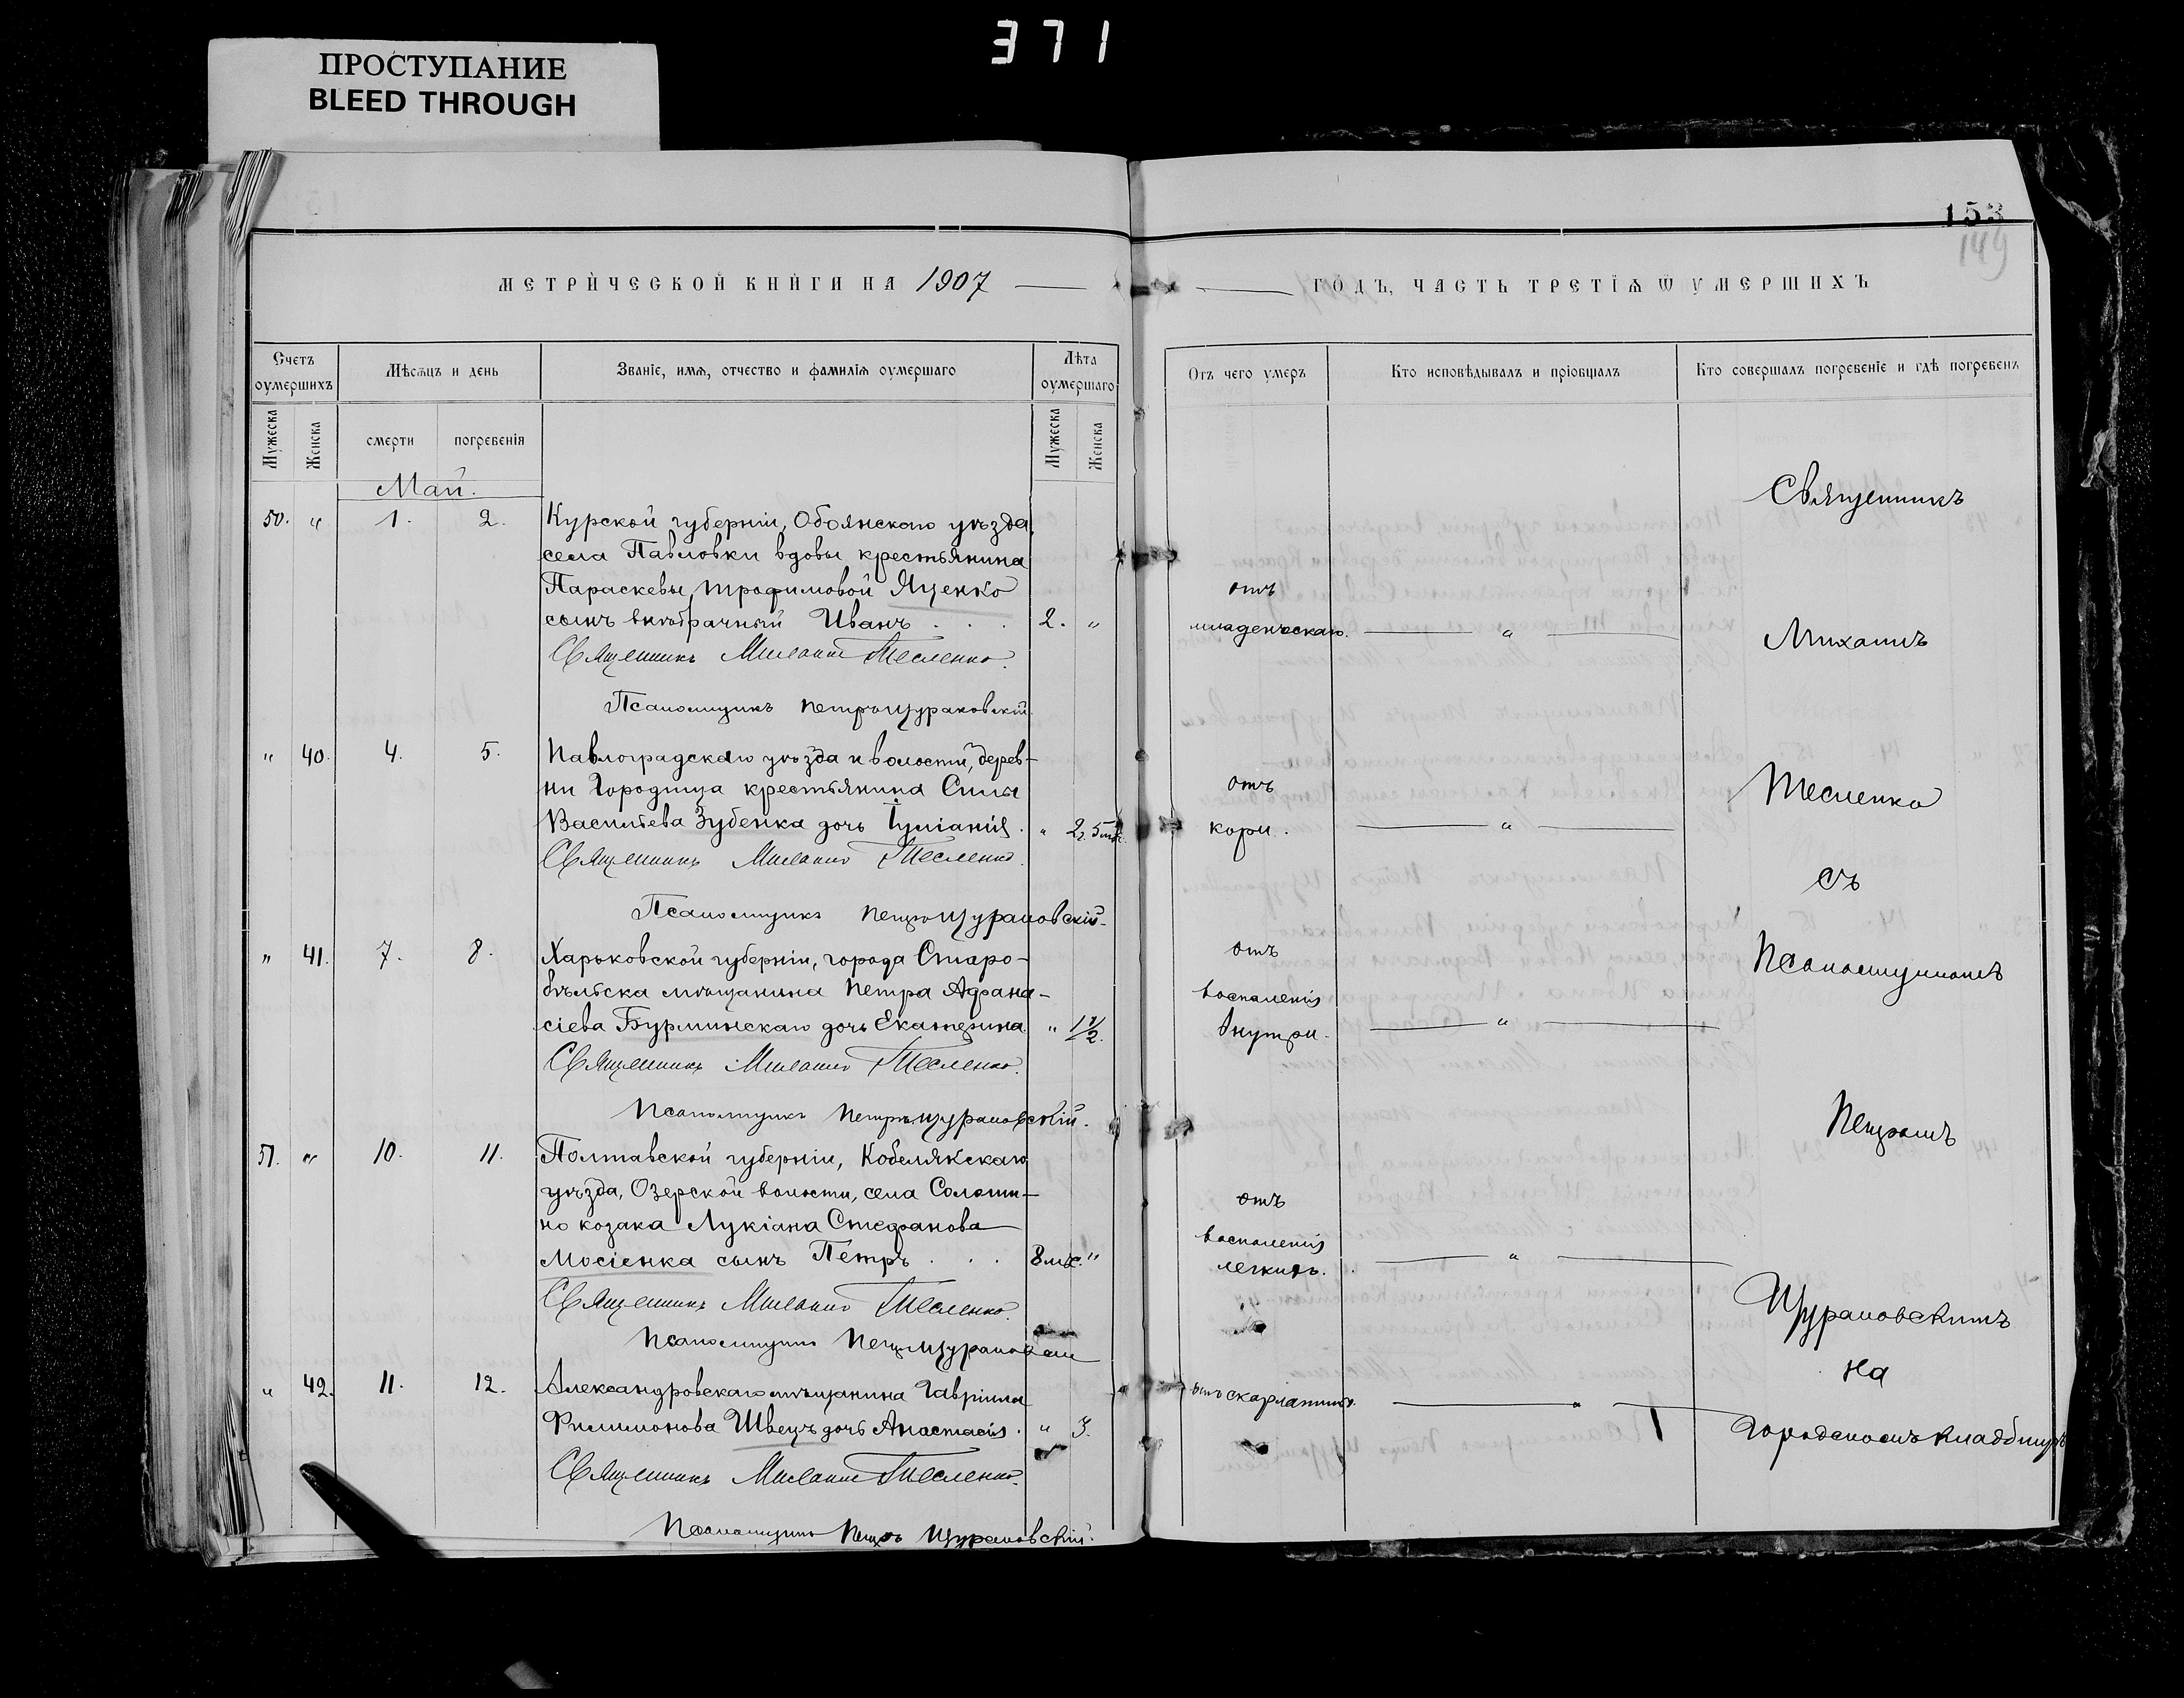 371
ПРОСТУПАНИЕ
BLEED THROUGH
153
149
МЕТРИЧЕСКОЙ КНИГИ НА 1907
ГОДЪ, ЧАСТЬ ТРЕТІѦ Ѿ УМЕРШИХЪ
Счетъ оумершихъ
Мѣсѧцъ и день
Званіе, имѧ, отчество и фамиліѧ оумершаго
Лѣта оумершаго
Отъ чего умеръ
Кто исповѣдывалъ и пріобщалъ
Кто совершалъ погребеніе и гдѣ погребенъ
Мужеска
Женска
смерти
погребенія
Мужеска
Женска
Май.
50. " 1. 2. Курской губерніи, Обоянскаго уѣзда,
села Павловки вдовы крестьянина
Параскевы Трофимовой Яценко
сынъ внѣбрачный Иванъ . . . 2. "
отъ
младенческаго. "
Священникъ Михаилъ Тесленко.
Псаломщикъ Петръ Щурановскій.
" 40. 4. 5. Павлоградскаго уѣзда и волости, дерев-
ни Городища крестьянина Силы
Васильева Зубенка дочь Іуліанія. " 2г. 5 мѣс.
отъ
кори. "
Священникъ Михаилъ Тесленко.
Псаломщикъ Петръ Щурановскій.
" 41. 7. 8. Харьковской губерніи, города Старо-
бѣльска мѣщанина Петра Афана-
сіева Бурминскаго дочь Екатерина. " 1 1/2.
отъ
воспаленія
внутри. "
Священникъ Михаилъ Тесленко.
Псаломщикъ Петръ Щурановскій.
51. " 10. 11. Полтавской губерніи, Кобелякскаго
уѣзда, Озерской волости, села Солоши-
но козака Лукіана Стефанова
Мосіенка сынъ Петръ . . . 8 мѣс. "
отъ
воспаленія
легкихъ. "
Священникъ Михаилъ Тесленко.
Псаломщикъ Петръ Щурановскій
" 42. 11. 12. Александровскаго мѣщанина Гавріила
Филимонова Швецъ дочь Анастасія. " 3.
отъ скарлатины. "
Священникъ Михаилъ Тесленко.
Псаломщикъ Петръ Щурановскій.
Священникъ
Михаилъ
Тесленко
съ
Псаломщикомъ
Петромъ
Щурановскимъ
на
городскомъ кладбищѣ